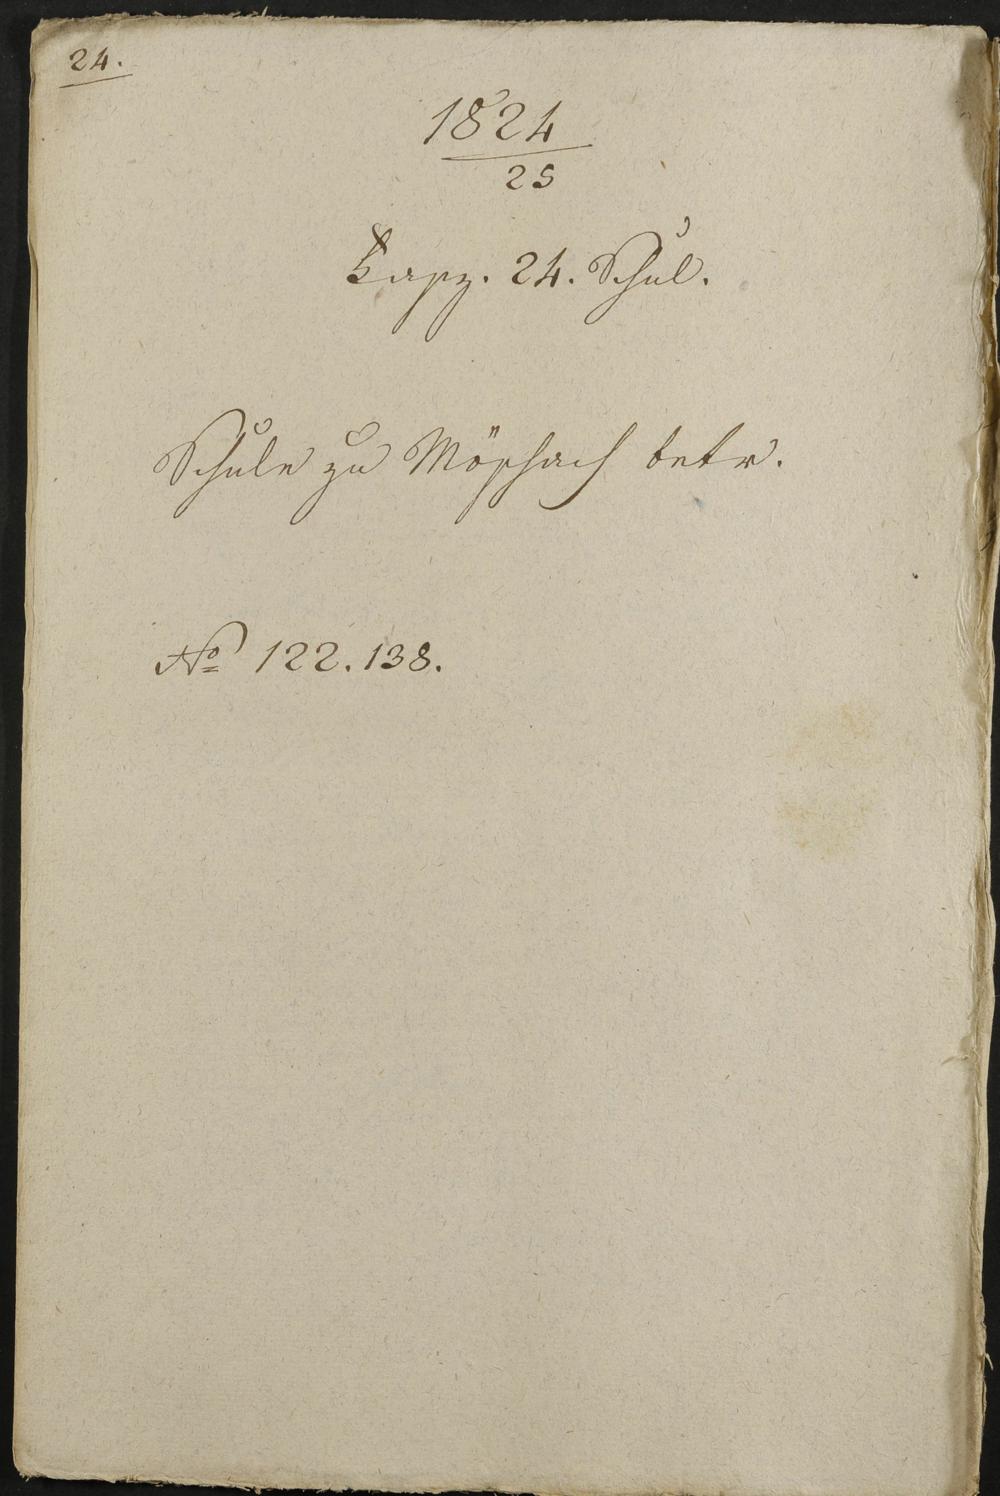 24.
1824
25
24. Schul.
Schule zu Möschach betr.
No 122. 138.